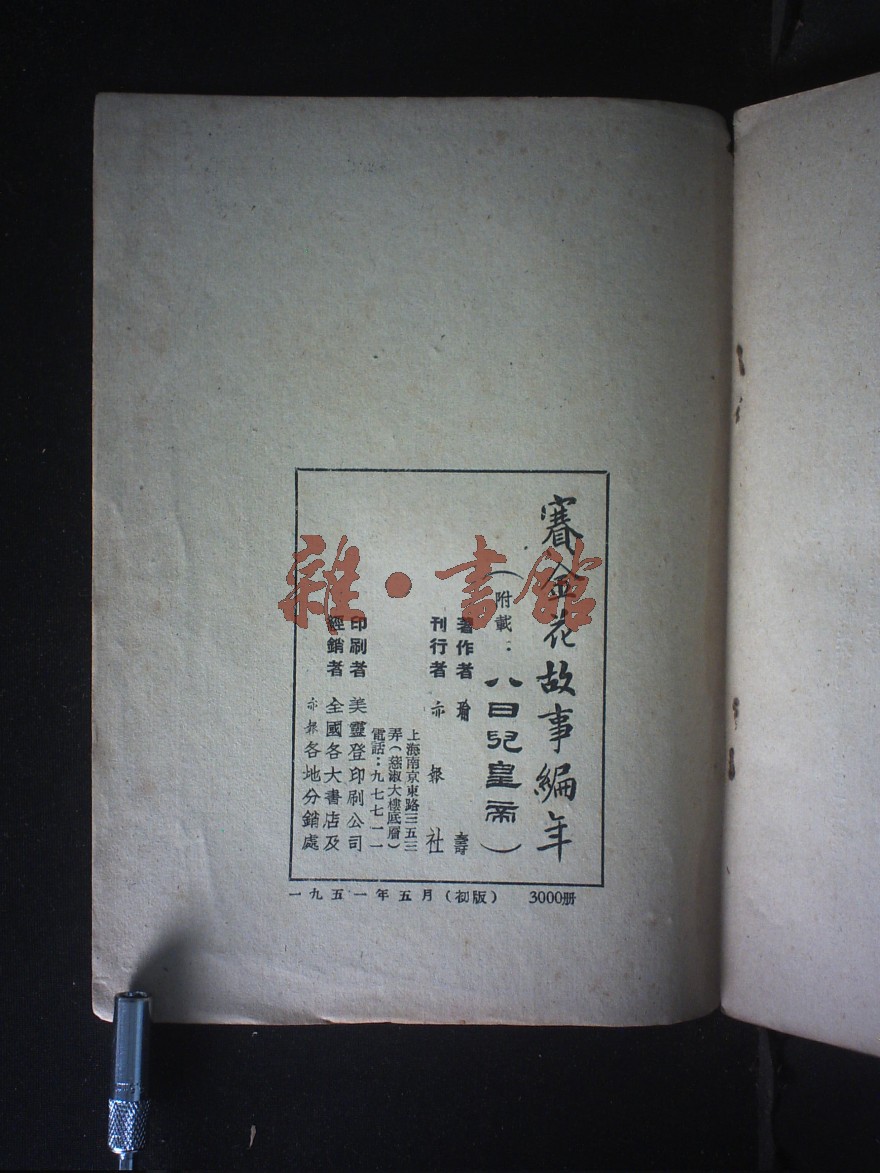 賽金花故事編年
（附載：八日兒皇帝）
著作者 瑜壽
刊行者 亦報社
上海南京東路三五三
弄（慈淑大樓底層）
電話：九七七一一
印刷者 美靈登印刷公司
經銷者 全國各大書店及
亦報各地分銷處
一九五一年五月（初版） 3000册
雜·書館